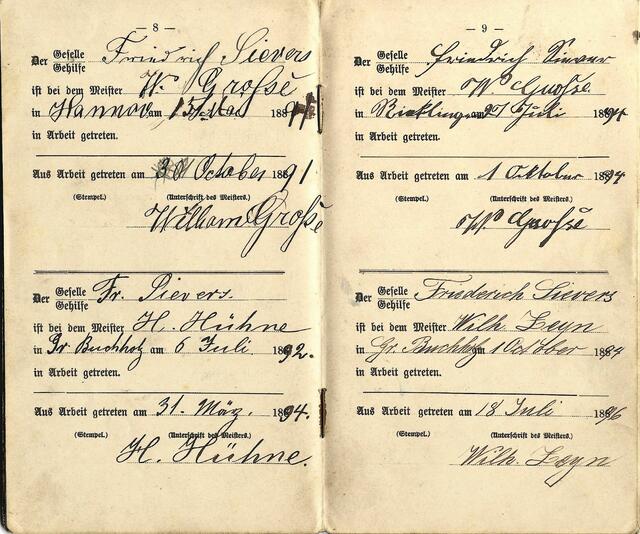 — 8 —
Der Geselle Gehilfe Friedrich Sievers
ist bei dem Meister W. Große
in Hannov am 15 Mai 18891
in Arbeit getreten.
Aus Arbeit getreten am 30 October 18891
(Stempel.) (Unterschrift des Meisters.)
Wilhem Große
Der Geselle Gehilfe Fr. Sievers.
ist bei dem Meister H. Hühne
in Gr. Buchholz am 6 Juli 18892.
in Arbeit getreten.
Aus Arbeit getreten am 31. März 1894.
(Stempel.) (Unterschrift des Meisters.)
H. Hühne.
— 9 —
Der Geselle Gehilfe Friedrich Siever
ist bei dem Meister W. Große
in Ricklingen Juli 18894
in Arbeit getreten.
Aus Arbeit getreten am 1 Oktober 18894
(Stempel.) (Unterschrift des Meisters.)
W. Große
Der Geselle Gehilfe Friederich Sievers
ist bei dem Meister Wilh. Zeyn
in Gr. Buchholz am 1 October 18894
in Arbeit getreten.
Aus Arbeit getreten am 18 Juli 18896
(Stempel.) (Unterschrift des Meisters.)
Wilh. Zeyn